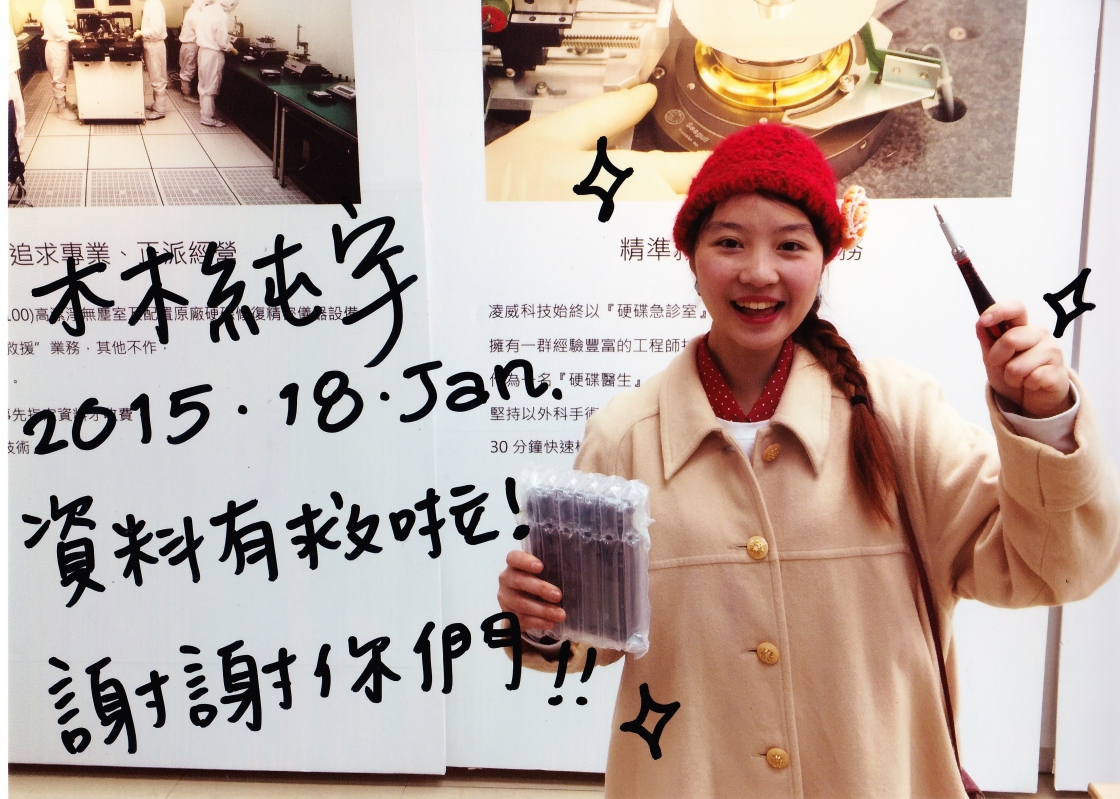 追求專業、正派經營
100)高潔淨無塵室及配置原廠硬碟修復精密儀器設備
救援”業務，其他不作，
。
技術
精準
務
凌威科技始終以『硬碟急診室』
擁有一群經驗豐富的工程師
作為一名『硬碟醫生』
堅持以外科手術
30 分鐘快速
Seagull
林純宇
2015.18.Jan.
資料有救啦!
謝謝你們!!